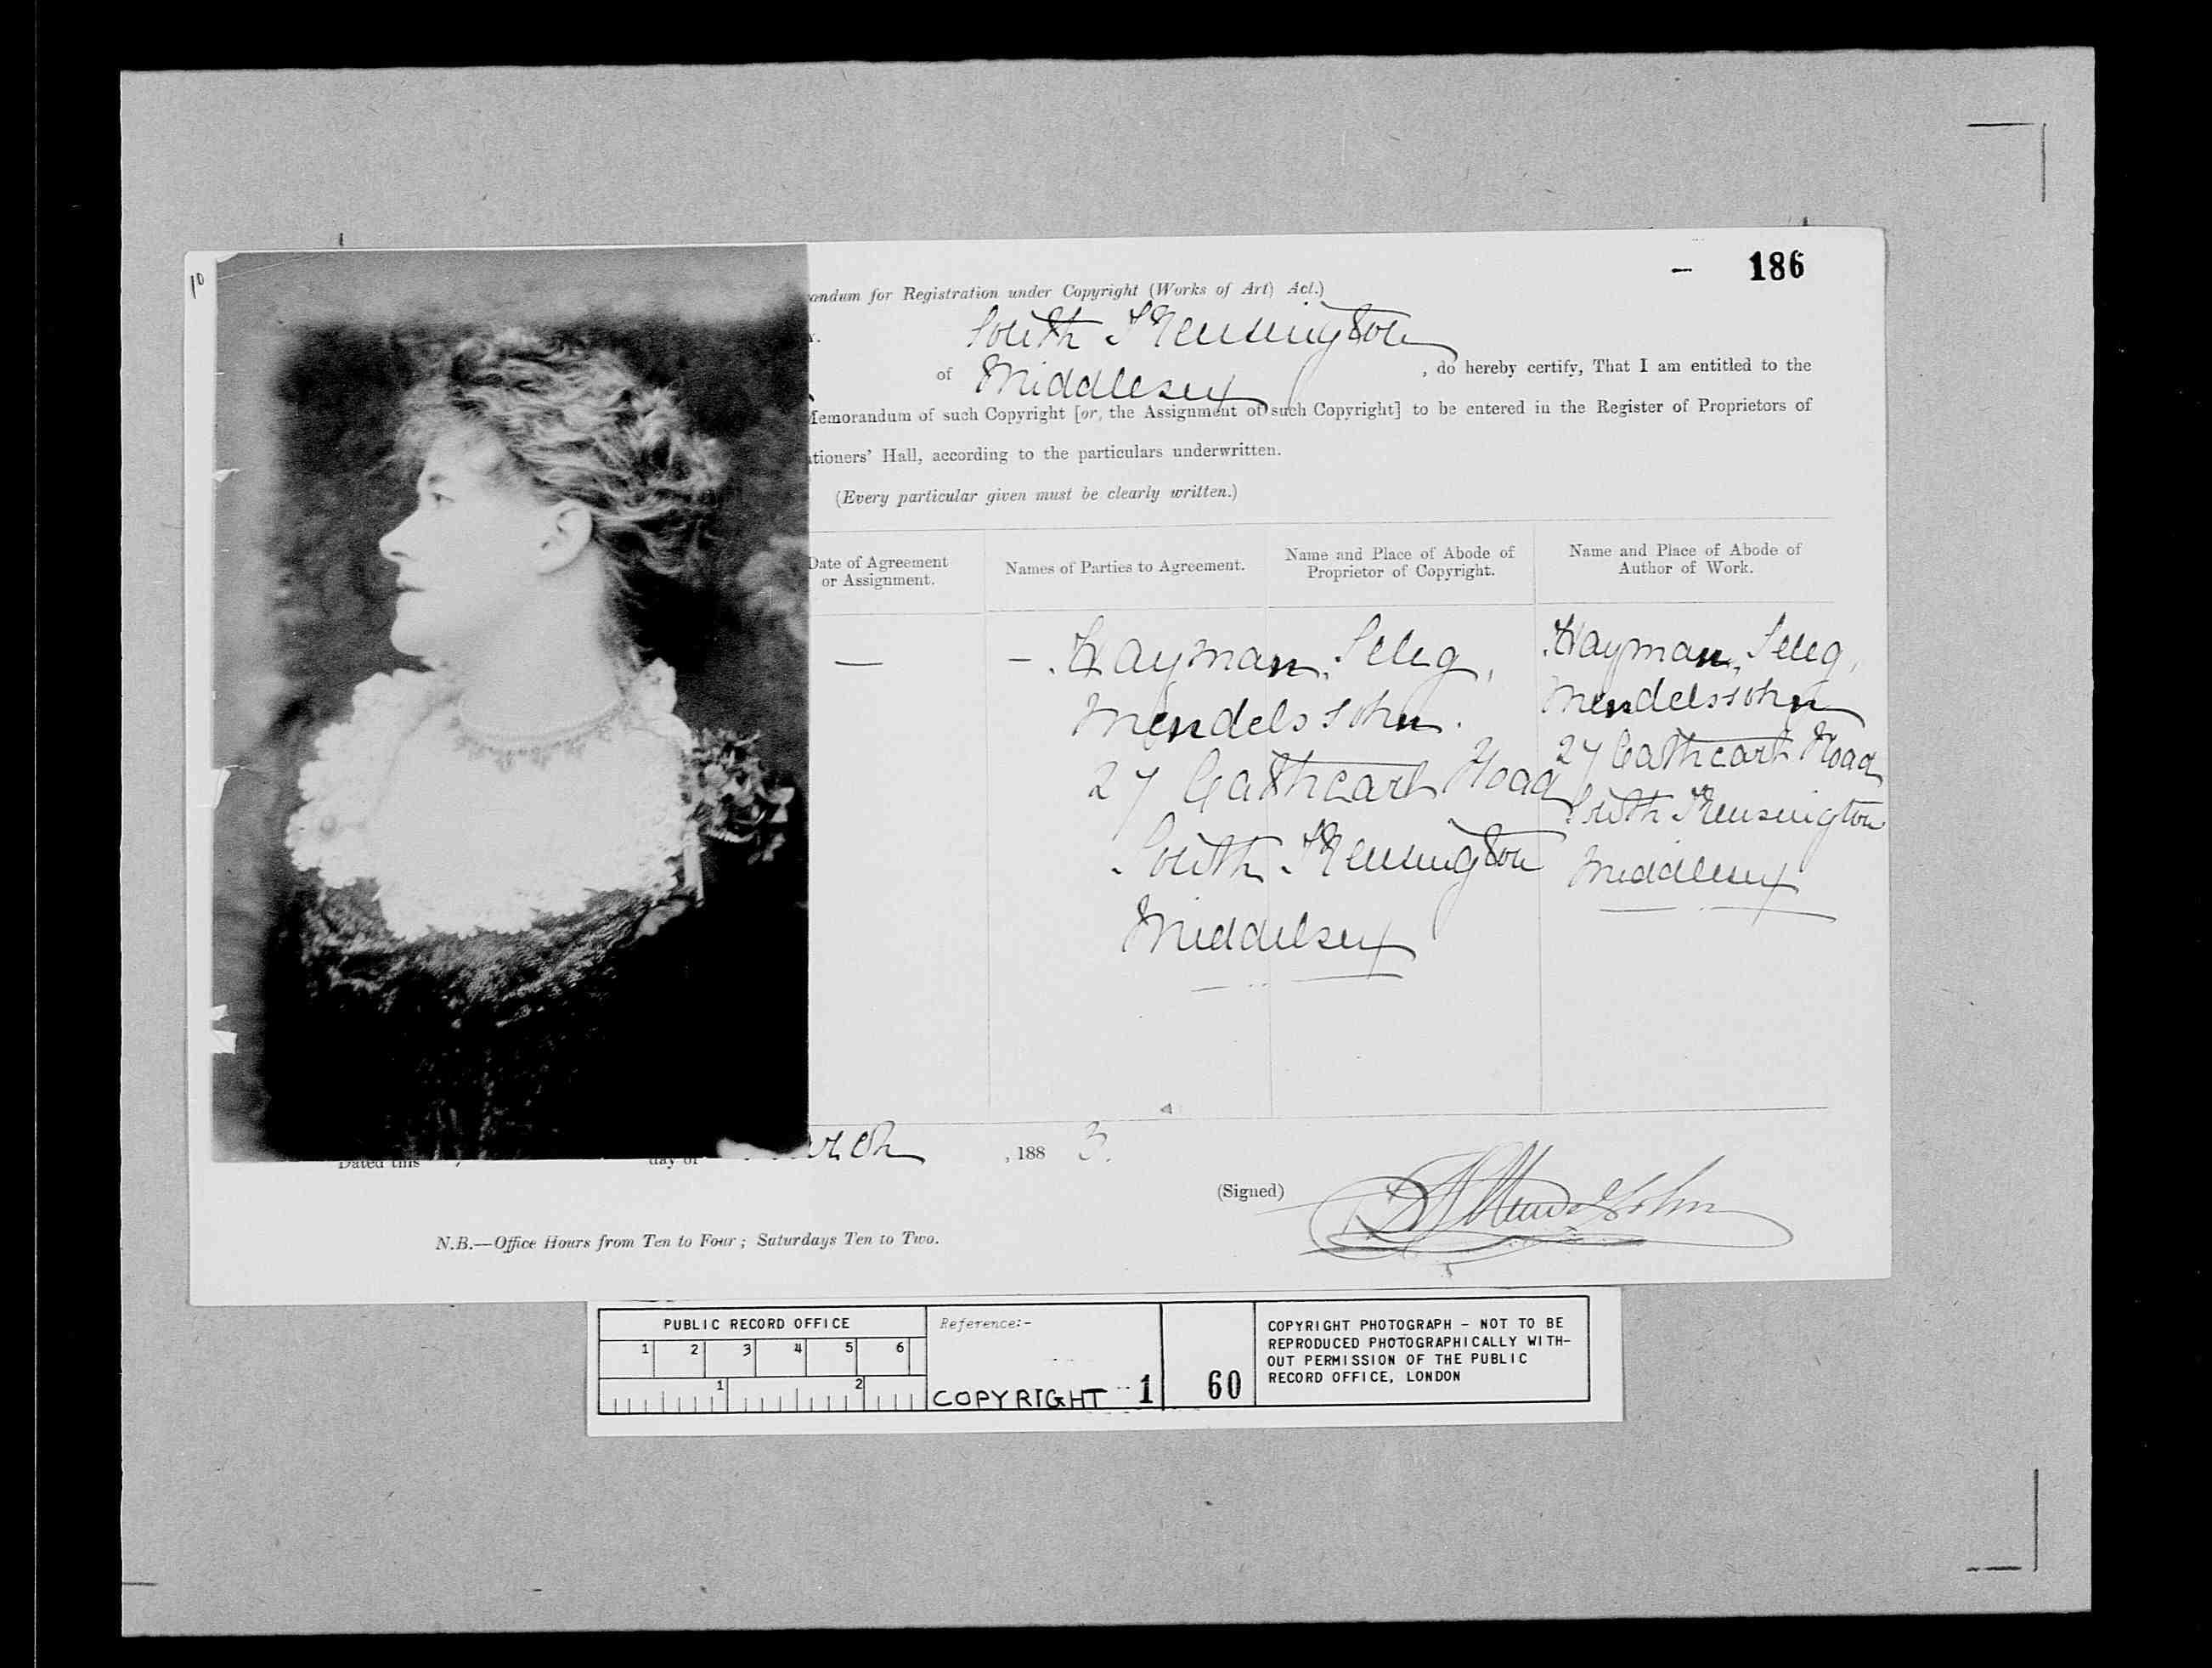 10
- 186
andum for Registration under Copyright (Works of Art) Act.)
South Kensington
of Middlesex, do hereby certify, That I am entitled to the
Memorandum of such Copyright [or, the Assignment of such Copyright] to be entered in the Register of Proprietors of
ationers' Hall, according to the particulars underwritten.
(Every particular given must be clearly written.)
Date of Agreement
or Assignment.
Names of Parties to Agreement.
Name and Place of Abode of
Proprietor of Copyright.
Name and Place of Abode of
Author of Work.
—
- Hayman, Seleg,
Mendelssohn.
27 Cathcart Road
South Kensington
Middelsex
Hayman, Seleg,
Mendelssohn
27 Cathcart Road
South Kensington
Middlesex
Dated this day of arch, 188 3.
(Signed) HS Mendelssohn
N.B.—Office Hours from Ten to Four; Saturdays Ten to Two.
PUBLIC RECORD OFFICE
1 2 3 4 5 6
1 2
Reference:-
COPYRIGHT 1 60
COPYRIGHT PHOTOGRAPH - NOT TO BE
REPRODUCED PHOTOGRAPHICALLY WITH-
OUT PERMISSION OF THE PUBLIC
RECORD OFFICE, LONDON